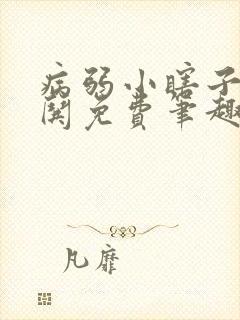 病弱小瞎子
閱免費笔趣
凡靡